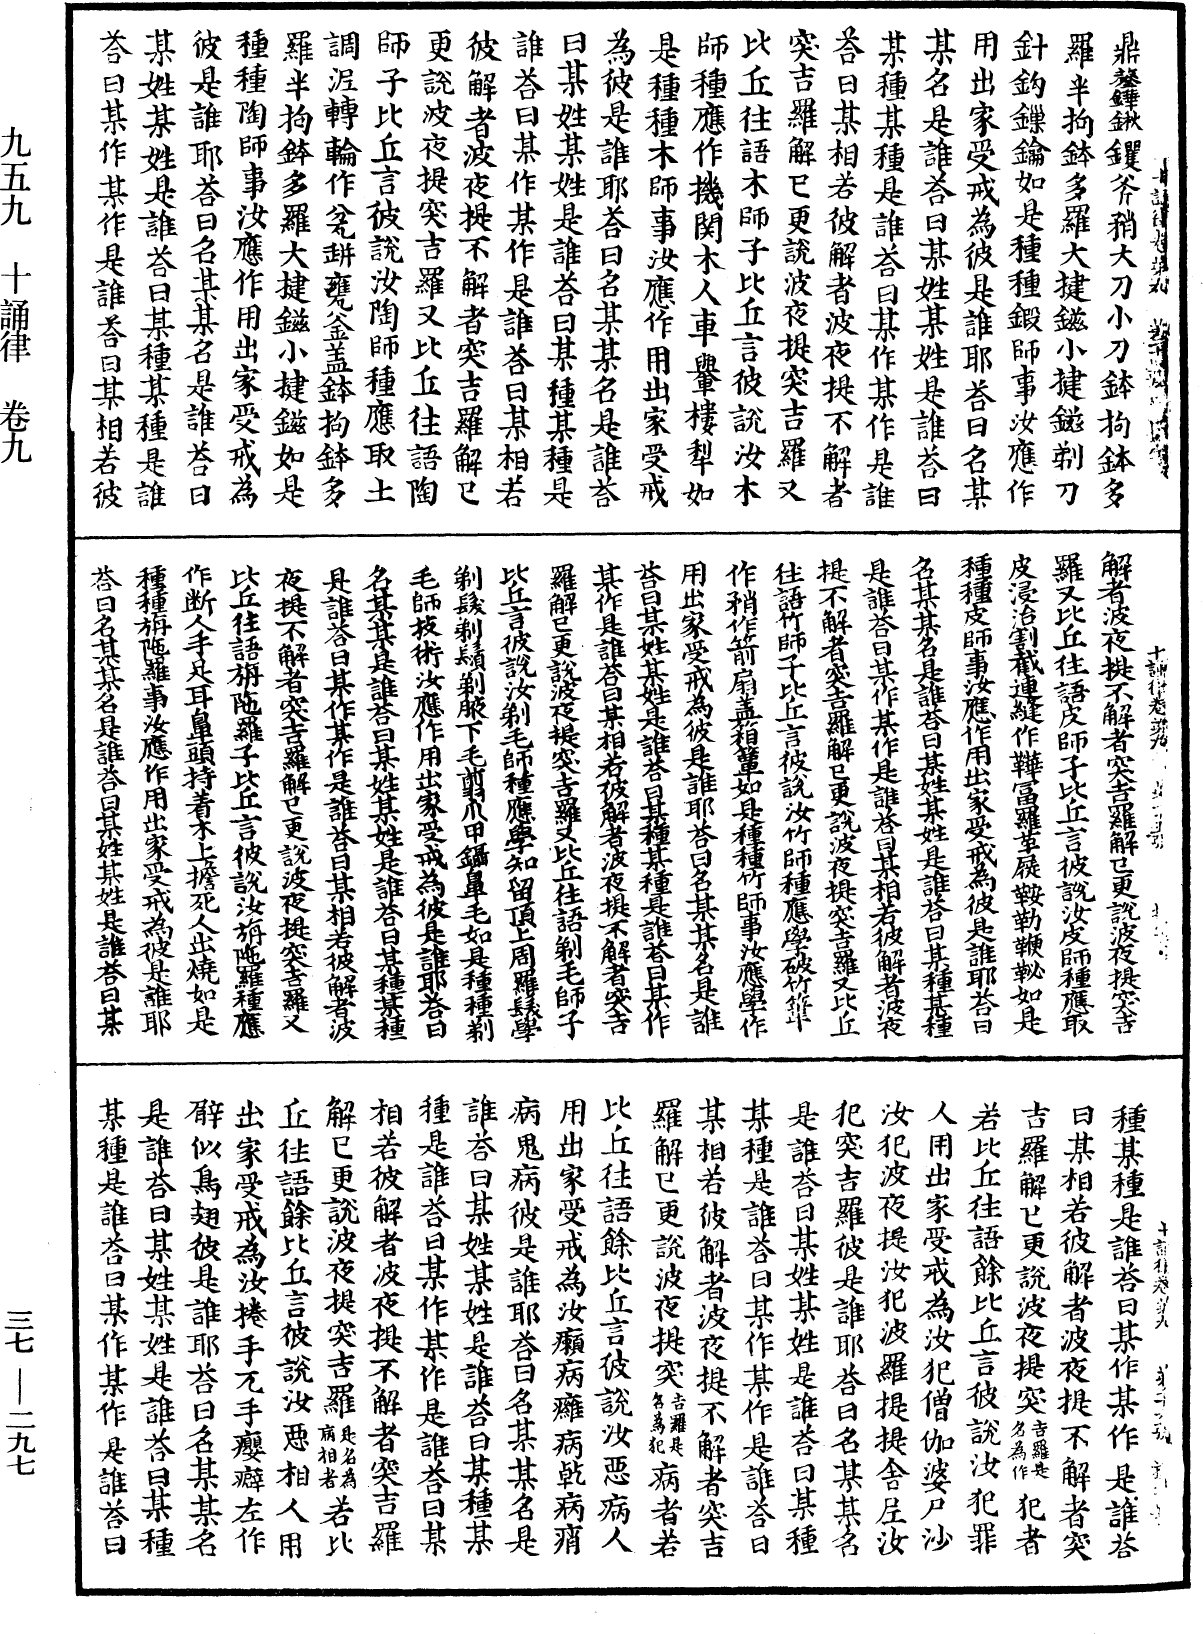 鼎鏊鏵鍬钁斧矟大刀小刀鉢拘鉢多
羅半拘鉢多羅大揵鎡小揵鎡剃刀
針鈎鏁鑰如是種種鍛師事汝應作
用出家受戒為彼是誰耶荅曰名某
某名是誰荅曰某姓某姓是誰荅曰
某種某種是誰荅曰某作某作是誰
荅曰某相若彼解者波夜提不解者
突吉羅解已更說波夜提突吉羅又
比丘往語木師子比丘言彼說汝木
師種應作機関木人車轝樓犁如
是種種木師事汝應作用出家受戒
為彼是誰耶荅曰名某某名是誰荅
曰某姓某姓是誰荅曰某種某種是
誰荅曰某作某作是誰荅曰某相若
彼解者波夜提不解者突吉羅解已
更說波夜提突吉羅又比丘往語陶
師子比丘言彼說汝陶師種應取土
調泥轉輪作瓫瓶甕釜盖鉢拘鉢多
羅半拘鉢多羅大揵鎡小揵鎡如是
種種陶師事汝應作用出家受戒為
彼是誰耶荅曰名某某名是誰荅曰
某姓某姓是誰荅曰某種某種是誰
荅曰某作某作是誰荅曰某相若彼
解者波夜提不解者突吉羅解已更說波夜提突吉
羅又比丘往語皮師子比丘言彼說汝皮師種應取
皮浸治割截連縫作鞾富羅革屣鞍勒鞭鞦如是
種種皮師事汝應作用出家受戒為彼是誰耶荅曰
名某某名是誰荅曰某姓某姓是誰荅曰某種某種
是誰荅曰某作某作是誰荅曰某相若彼解者波夜
提不解者突吉羅解已更說波夜提突吉羅又比丘
往語竹師子比丘言彼說汝竹師種應學破竹簁
作矟作箭扇盖箱簞如是種種竹師事汝應學作
用出家受戒為彼是誰耶荅曰名某某名是誰
荅曰某姓某姓是誰荅曰某種某種是誰荅曰某作
某作是誰荅曰某相若彼解者波夜提不解者突吉
羅解已更說波夜提突吉羅又比丘往語剃毛師子
比丘言彼說汝剃毛師種應學知留頂上周羅髮學
剃髮剃鬚剃腋下毛剪爪甲鑷鼻毛如是種種剃
毛師技術汝應作用出家受戒為彼是誰耶荅曰
名某某是誰荅曰某姓某姓是誰荅曰某種某種
是誰荅曰某作某作是誰荅曰某相若彼解者波
夜提不解者突吉羅解已更說波夜提突吉羅又
比丘往語旃陁羅子比丘言彼說汝旃陁羅種應
作断人手足耳鼻頭持着木上擔死人出燒如是
種種旃陁羅事汝應作用出家受戒為彼是誰耶
荅曰名某某名是誰荅曰某姓某姓是誰荅曰某
種某種是誰荅曰某作某作是誰荅
曰某相若彼解者波夜提不解者突
吉羅解已更說波夜提突吉羅是名為作犯者
若比丘往語餘比丘言彼說汝犯罪
人用出家受戒為汝犯僧伽婆尸沙
汝犯波夜提汝犯波羅提提舍尼汝
犯突吉羅彼是誰耶荅曰名某某名
是誰荅曰某姓某姓是誰荅曰某種
某種是誰荅曰某作某作是誰荅曰
某相若彼解者波夜提不解者突吉
羅解已更說波夜提突吉羅是名為犯病者若
比丘往語餘比丘言彼說汝惡病人
用出家受戒為汝癩病癰病乹病痟
病鬼病彼是誰耶荅曰名某某名是
誰荅曰某姓某姓是誰荅曰某種某
種是誰荅曰某作某作是誰荅曰某
相若彼解者波夜提不解者突吉羅
解已更說波夜提突吉羅是名為病相者若比
丘往語餘比丘言彼說汝惡相人用
出家受戒為汝捲手兀手癭癖左作
臂似鳥翅彼是誰耶荅曰名某某名
是誰荅曰某姓某姓是誰荅曰某種
某種是誰荅曰某作某作是誰荅曰
九五九 十誦律 卷九
三七 — 二九七